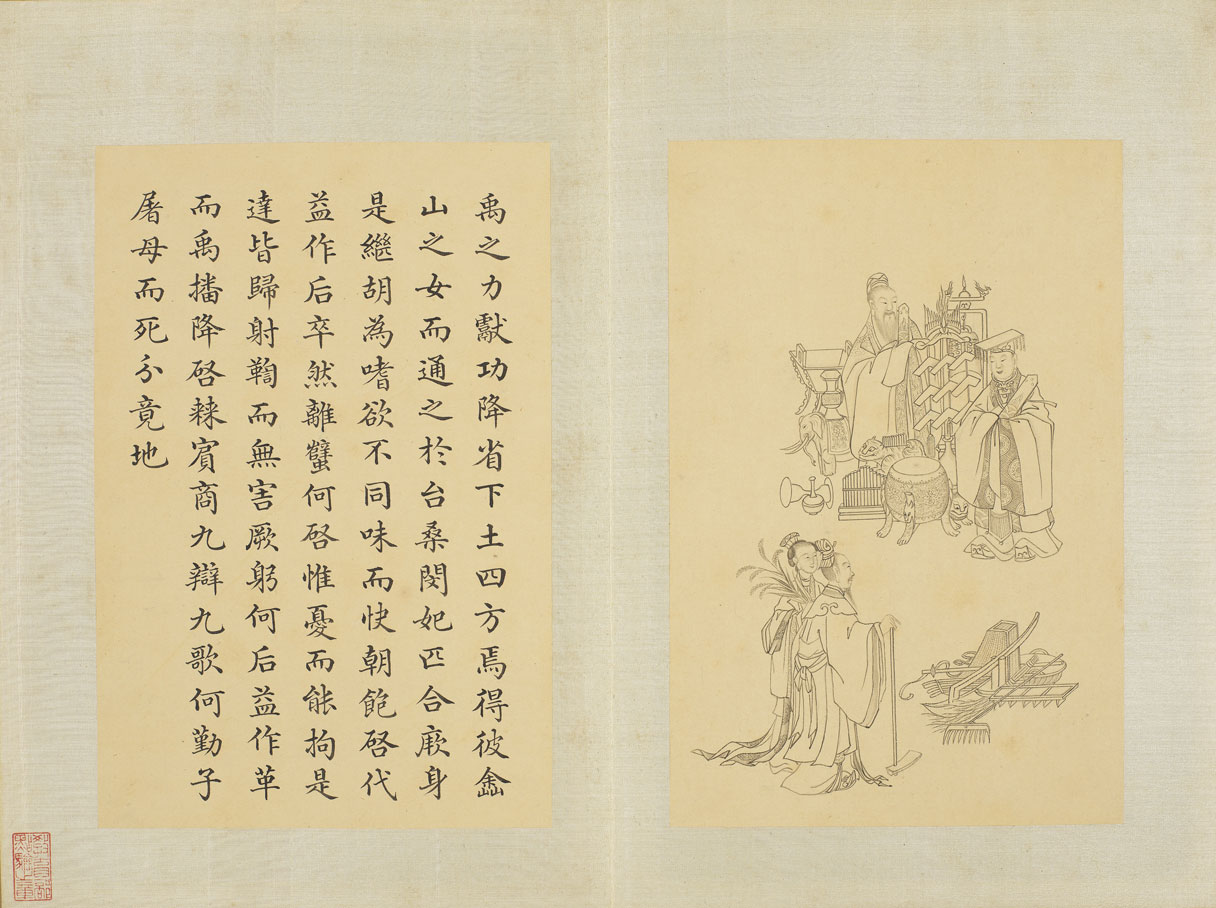 禹之力獻功降省下土四方焉得彼嵞
山之女而通之於台桑閔妃匹合厥身
是繼胡為嗜欲不同味而快朝飽啓代
益作后卒然離蠥何啓惟憂而能拘是
達皆歸射鞫而無害厥躬何后益作革
而禹播降啓棘賓商九辯九歌何勤子
屠母而死分竟地